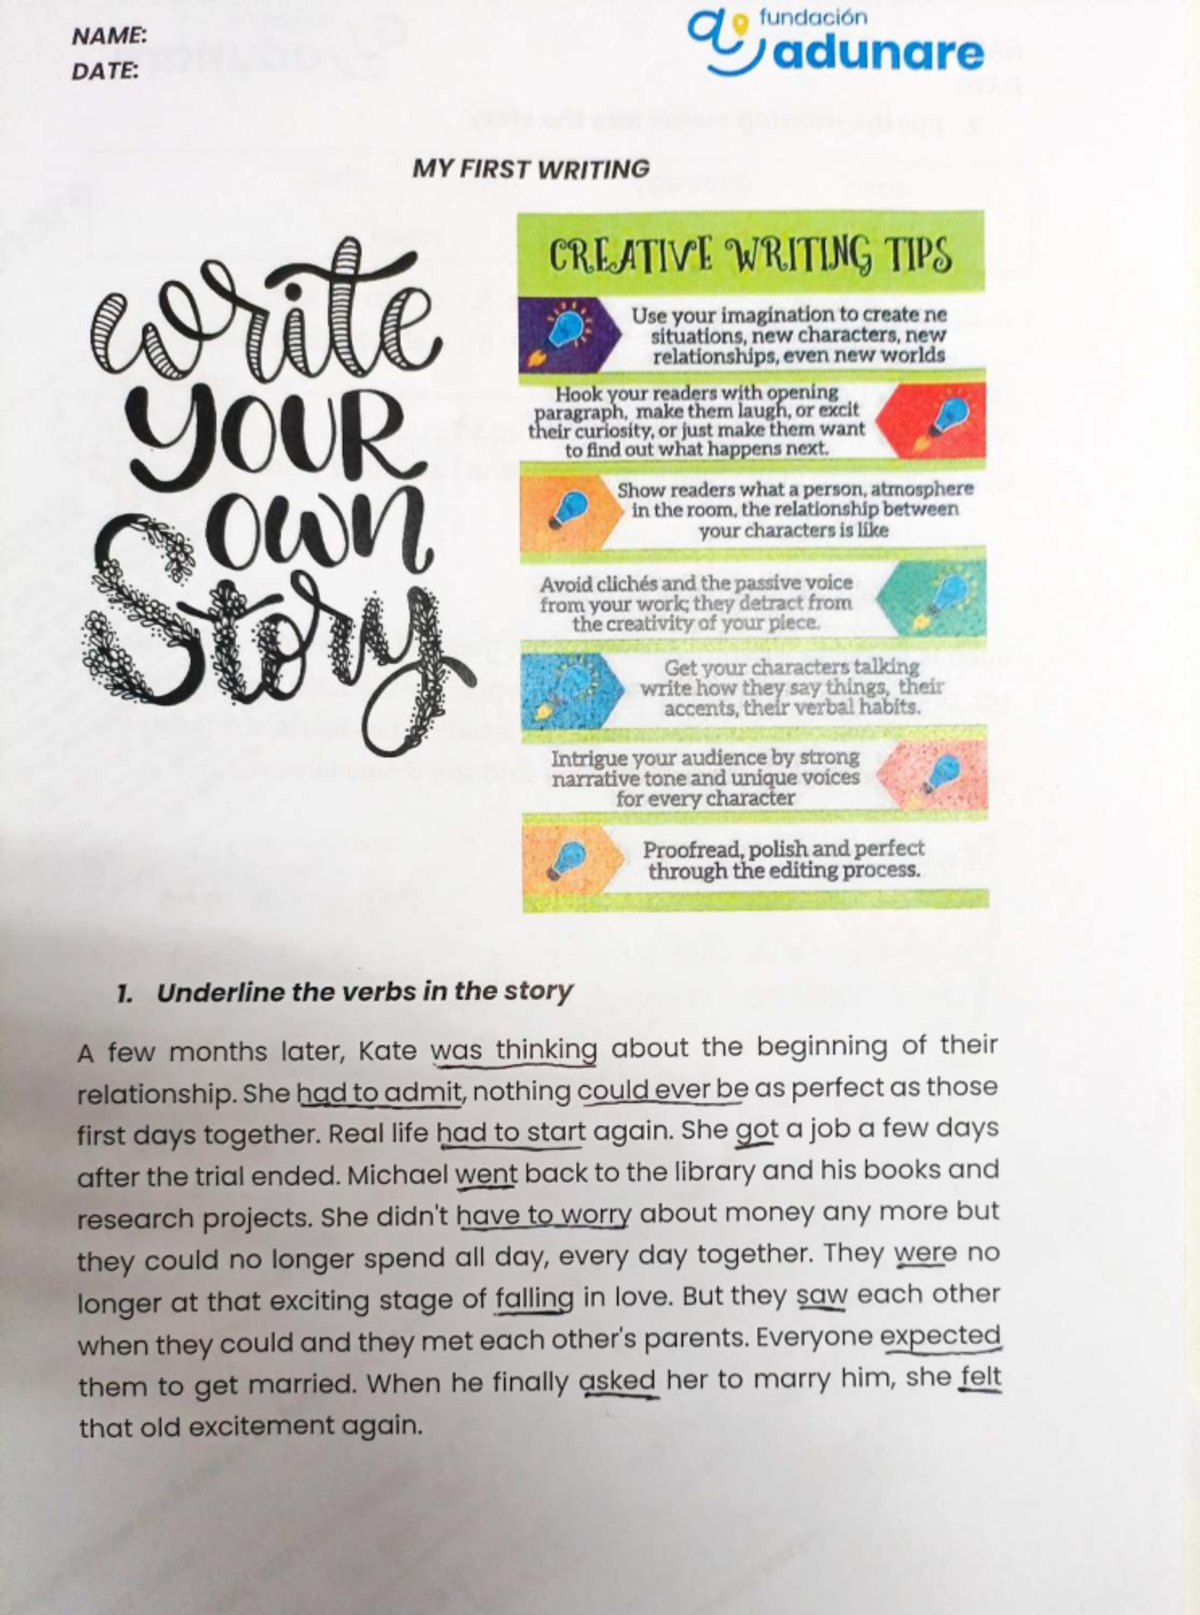 NAME:
DATE:
fundación
adunare
MY FIRST WRITING
write
YOUR
own
Story
CREATIVE WRITING TIPS
Use your imagination to create ne
situations, new characters, new
relationships, even new worlds
Hook your readers with opening
paragraph, make them laugh, or excit
their curiosity, or just make them want
to find out what happens next.
Show readers what a person, atmosphere
in the room, the relationship between
your characters is like
Avoid clichés and the passive voice
from your work; they detract from
the creativity of your piece.
Get your characters talking
write how they say things, their
accents, their verbal habits.
Intrigue your audience by strong
narrative tone and unique voices
for every character
Proofread, polish and perfect
through the editing process.
1. Underline the verbs in the story
A few months later, Kate was thinking about the beginning of their
relationship. She had to admit, nothing could ever be as perfect as those
first days together. Real life had to start again. She got a job a few days
after the trial ended. Michael went back to the library and his books and
research projects. She didn't have to worry about money any more but
they could no longer spend all day, every day together. They were no
longer at that exciting stage of falling in love. But they saw each other
when they could and they met each other's parents. Everyone expected
them to get married. When he finally asked her to marry him, she felt
that old excitement again.